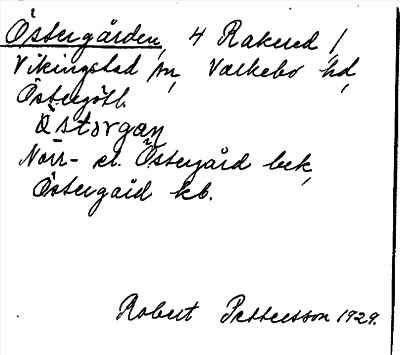 Östergården, 4 Rakered /
Vikingstad sn, Valkebo hd,
Östergötl.
Östorgan
Norr- el. Östergård bek,
Östergård kb.
Robert Pettersson 1929.